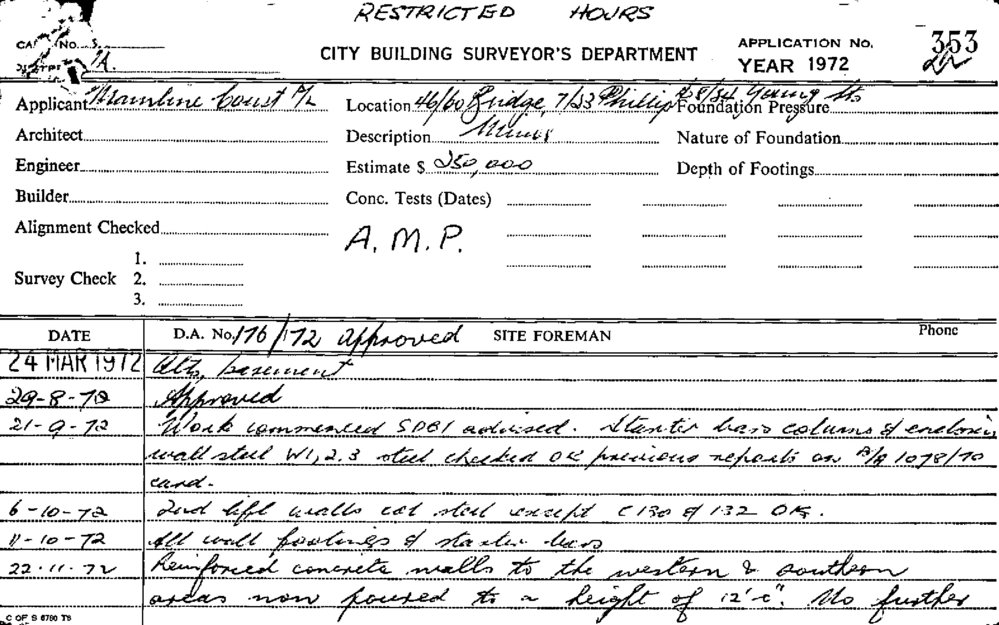 RESTRICTED HOURS
No. S.
CITY BUILDING SURVEYOR'S DEPARTMENT
APPLICATION No. 353/22
YEAR 1972
Applicant Mainline Const P/L Location 46/60 Bridge, 7/33 Phillip & 8/34 Young Sts Foundation Pressure
Architect Description Nature of Foundation
Engineer Estimate $ 250,000 Depth of Footings
Builder Conc. Tests (Dates)
Alignment Checked A.M.P.
1.
Survey Check 2.
3.
DATE D.A. No. 176/72 approved SITE FOREMAN Phone
24 MAR 1972 Alts, basement
29-8-72 Approved
21-9-72 Work commenced SDBI advised. Starter bars columns & enclosing
wall steel W1,2.3 steel checked OK previous reports on B/A 1078/70
card.
6-10-72 2nd lift walls col steel except C130 & 132 OK.
11-10-72 All wall footings & starter bars
22.11.72 Reinforced concrete walls to the western & southern
areas now poured to a height of 12'0". No further
C OF S 8780 TS